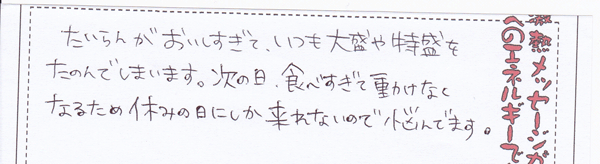 たいらんがおいしすぎて、いつも大盛や特盛を
たのんでしまいます。次の日、食べすぎて動けなく
なるため休みの日にしか来れないので悩んでます。
熱メッセージが
のエネルギーで